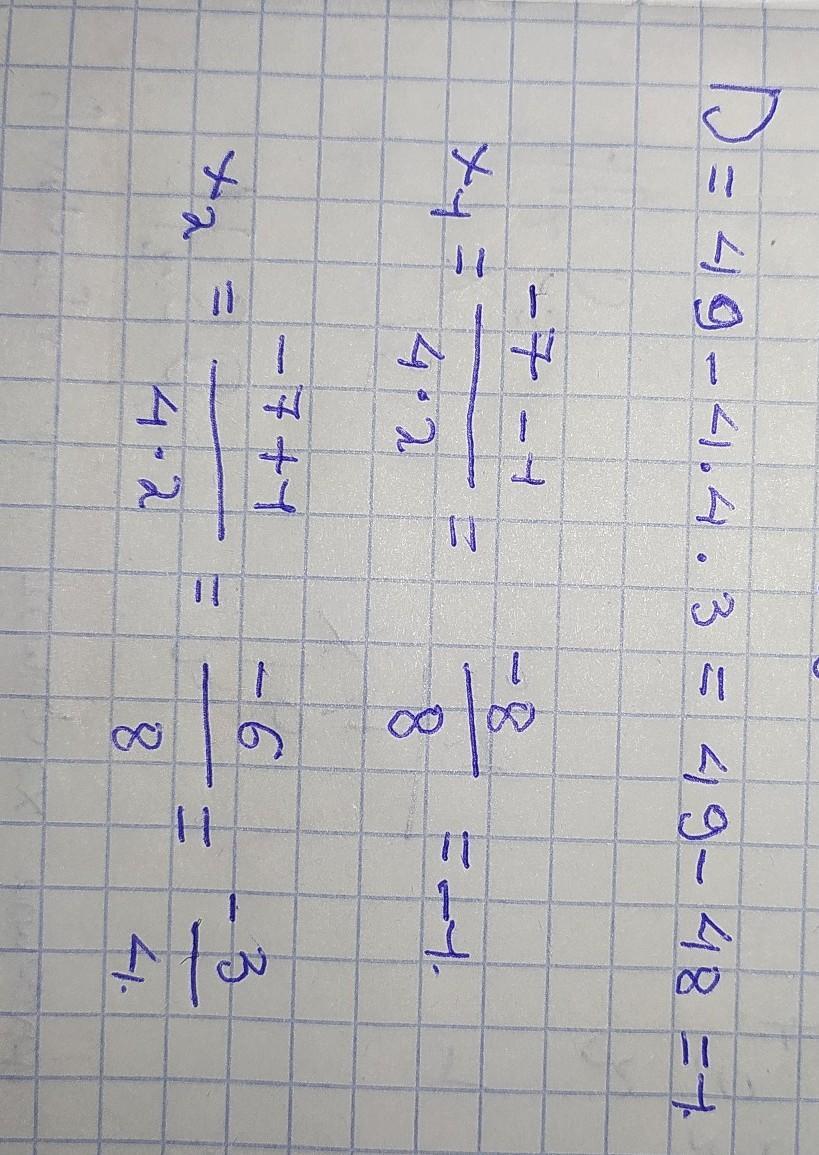 D = 49 - 4 · 4 · 3 = 49 - 48 = 1.
x₁ = (-7 - 1)/(4 · 2) = -8/8 = -1.
x₂ = (-7 + 1)/(4 · 2) = -6/8 = -3/4.